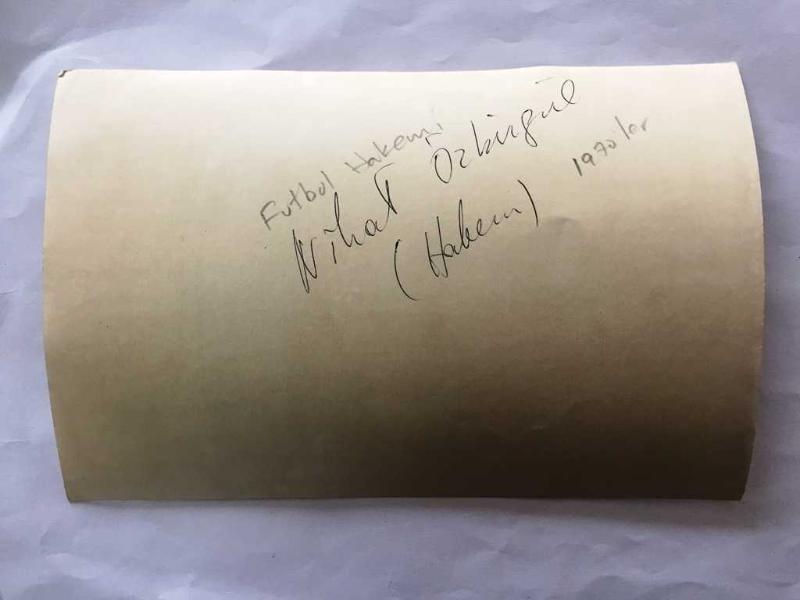 Futbol Hakemi
Nihat Özbirgül
(Hakem)
1970 ler